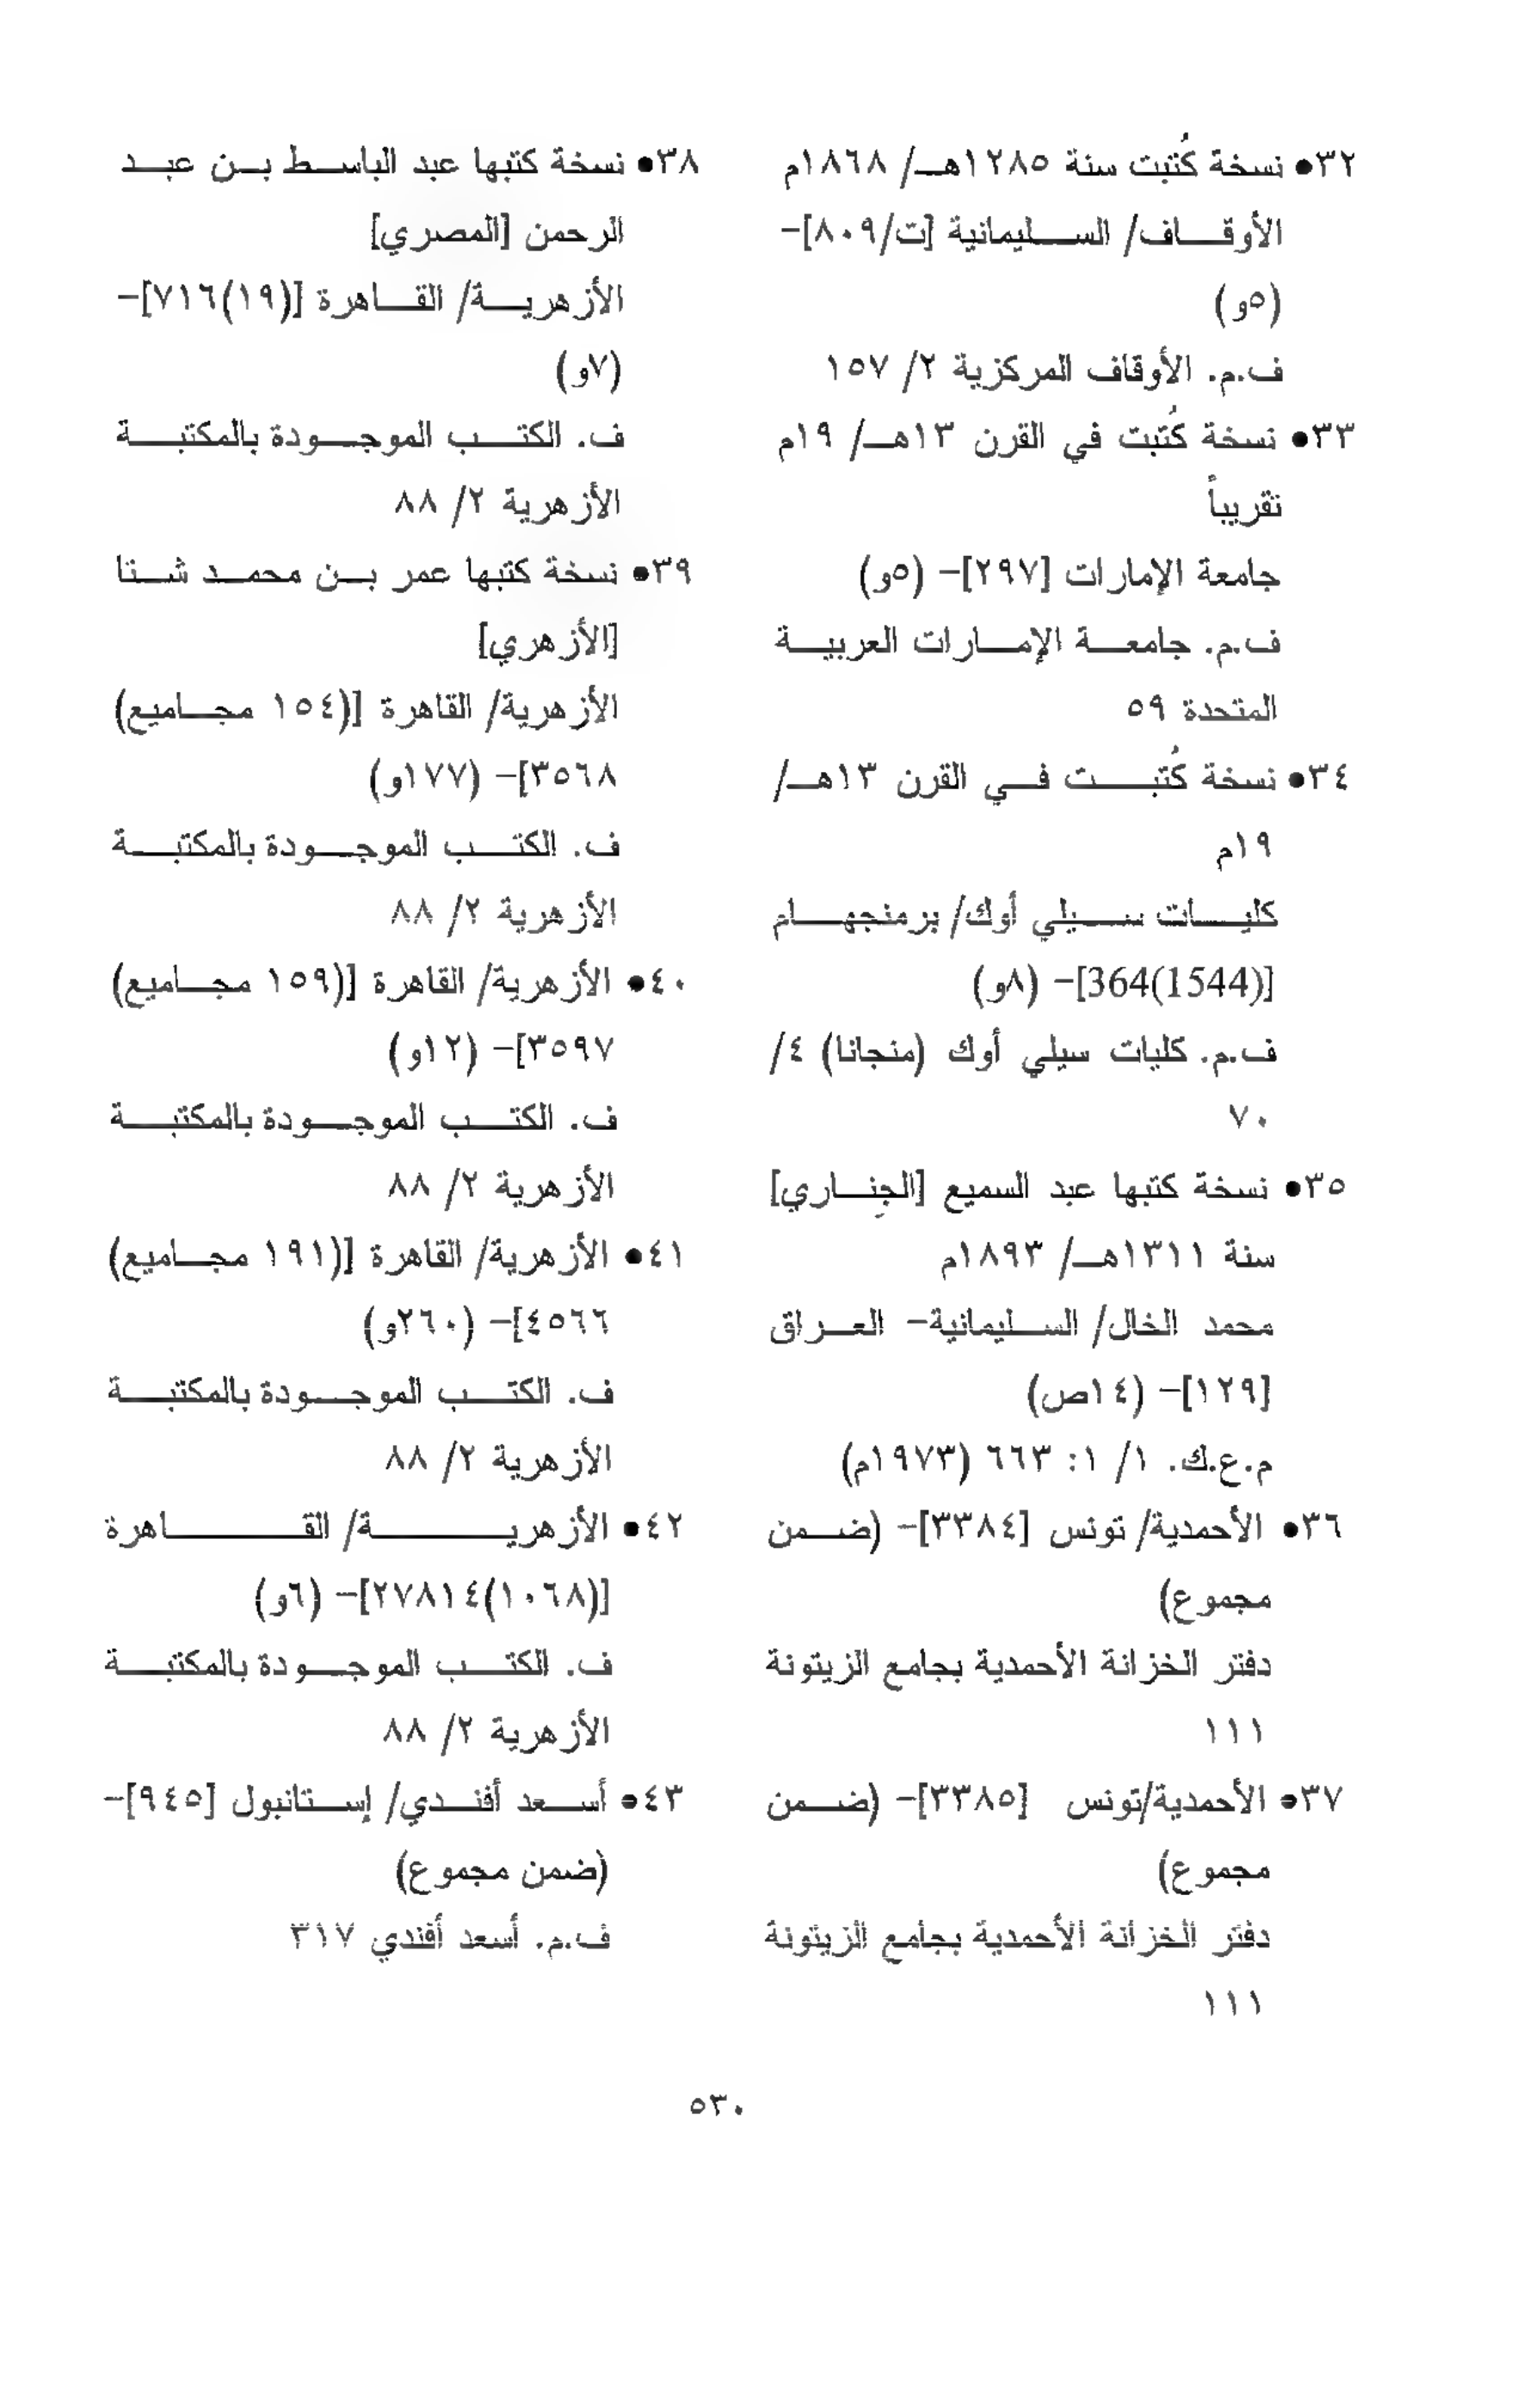 ٣٢● نسخة كُتبت سنة ١٢٨٥هـ/ ١٨٦٨م
الأوقاف/ السليمانية [ت/٨٠٩]-
(٥و)
ف.م. الأوقاف المركزية ٢/ ١٥٧
٣٣● نسخة كُتبت في القرن ١٣هـ/ ١٩م
تقريباً
جامعة الإمارات [٢٩٧]- (٥و)
ف.م. جامعة الإمارات العربية
المتحدة ٥٩
٣٤● نسخة كُتبت في القرن ١٣هـ/
١٩م
كليات سيلي أوك/ برمنجهام
[364(1544)]- (٨و)
ف.م. كليات سيلي أوك (منجانا) ٤/
٧٠
٣٥● نسخة كتبها عبد السميع [الجِناري]
سنة ١٣١١هـ/ ١٨٩٣م
محمد الخال/ السليمانية- العراق
[١٢٩]- (١٤ص)
م.ع.ك. ١/ ١: ٦٦٣ (١٩٧٣م)
٣٦● الأحمدية/ تونس [٣٣٨٤]- (ضمن
مجموع)
دفتر الخزانة الأحمدية بجامع الزيتونة
١١١
٣٧● الأحمدية/تونس [٣٣٨٥]- (ضمن
مجموع)
دفتر الخزانة الأحمدية بجامع الزيتونة
١١١
٣٨● نسخة كتبها عبد الباسط بن عبد
الرحمن [المصري]
الأزهرية/ القاهرة [(١٩)٧١٦]-
(٧و)
ف. الكتب الموجودة بالمكتبة
الأزهرية ٢/ ٨٨
٣٩● نسخة كتبها عمر بن محمد شتا
[الأزهري]
الأزهرية/ القاهرة [(١٥٤ مجاميع)
٣٥٦٨]- (١٧٧و)
ف. الكتب الموجودة بالمكتبة
الأزهرية ٢/ ٨٨
٤٠● الأزهرية/ القاهرة [(١٥٩ مجاميع)
٣٥٩٧]- (١٢و)
ف. الكتب الموجودة بالمكتبة
الأزهرية ٢/ ٨٨
٤١● الأزهرية/ القاهرة [(١٩١ مجاميع)
٤٥٦٦]- (٢٦٠و)
ف. الكتب الموجودة بالمكتبة
الأزهرية ٢/ ٨٨
٤٢● الأزهرية/ القاهرة
[(١٠٦٨)٢٧٨١٤]- (٦و)
ف. الكتب الموجودة بالمكتبة
الأزهرية ٢/ ٨٨
٤٣● أسعد أفندي/ إستانبول [٩٤٥]-
(ضمن مجموع)
ف.م. أسعد أفندي ٣١٧
٥٣٠